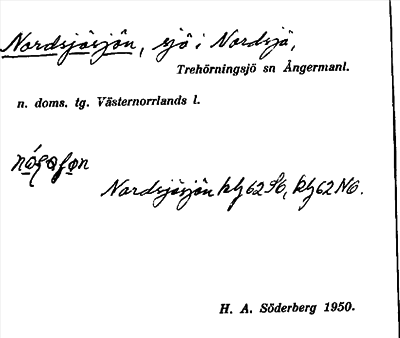 Nordsjösjön, sjö i Nordsjö,
Trehörningsjö sn Ångermanl.
n. doms. tg. Västernorrlands l.
Nordsjösjön kbl 62 SO, kbl 62 NO.
H. A. Söderberg 1950.